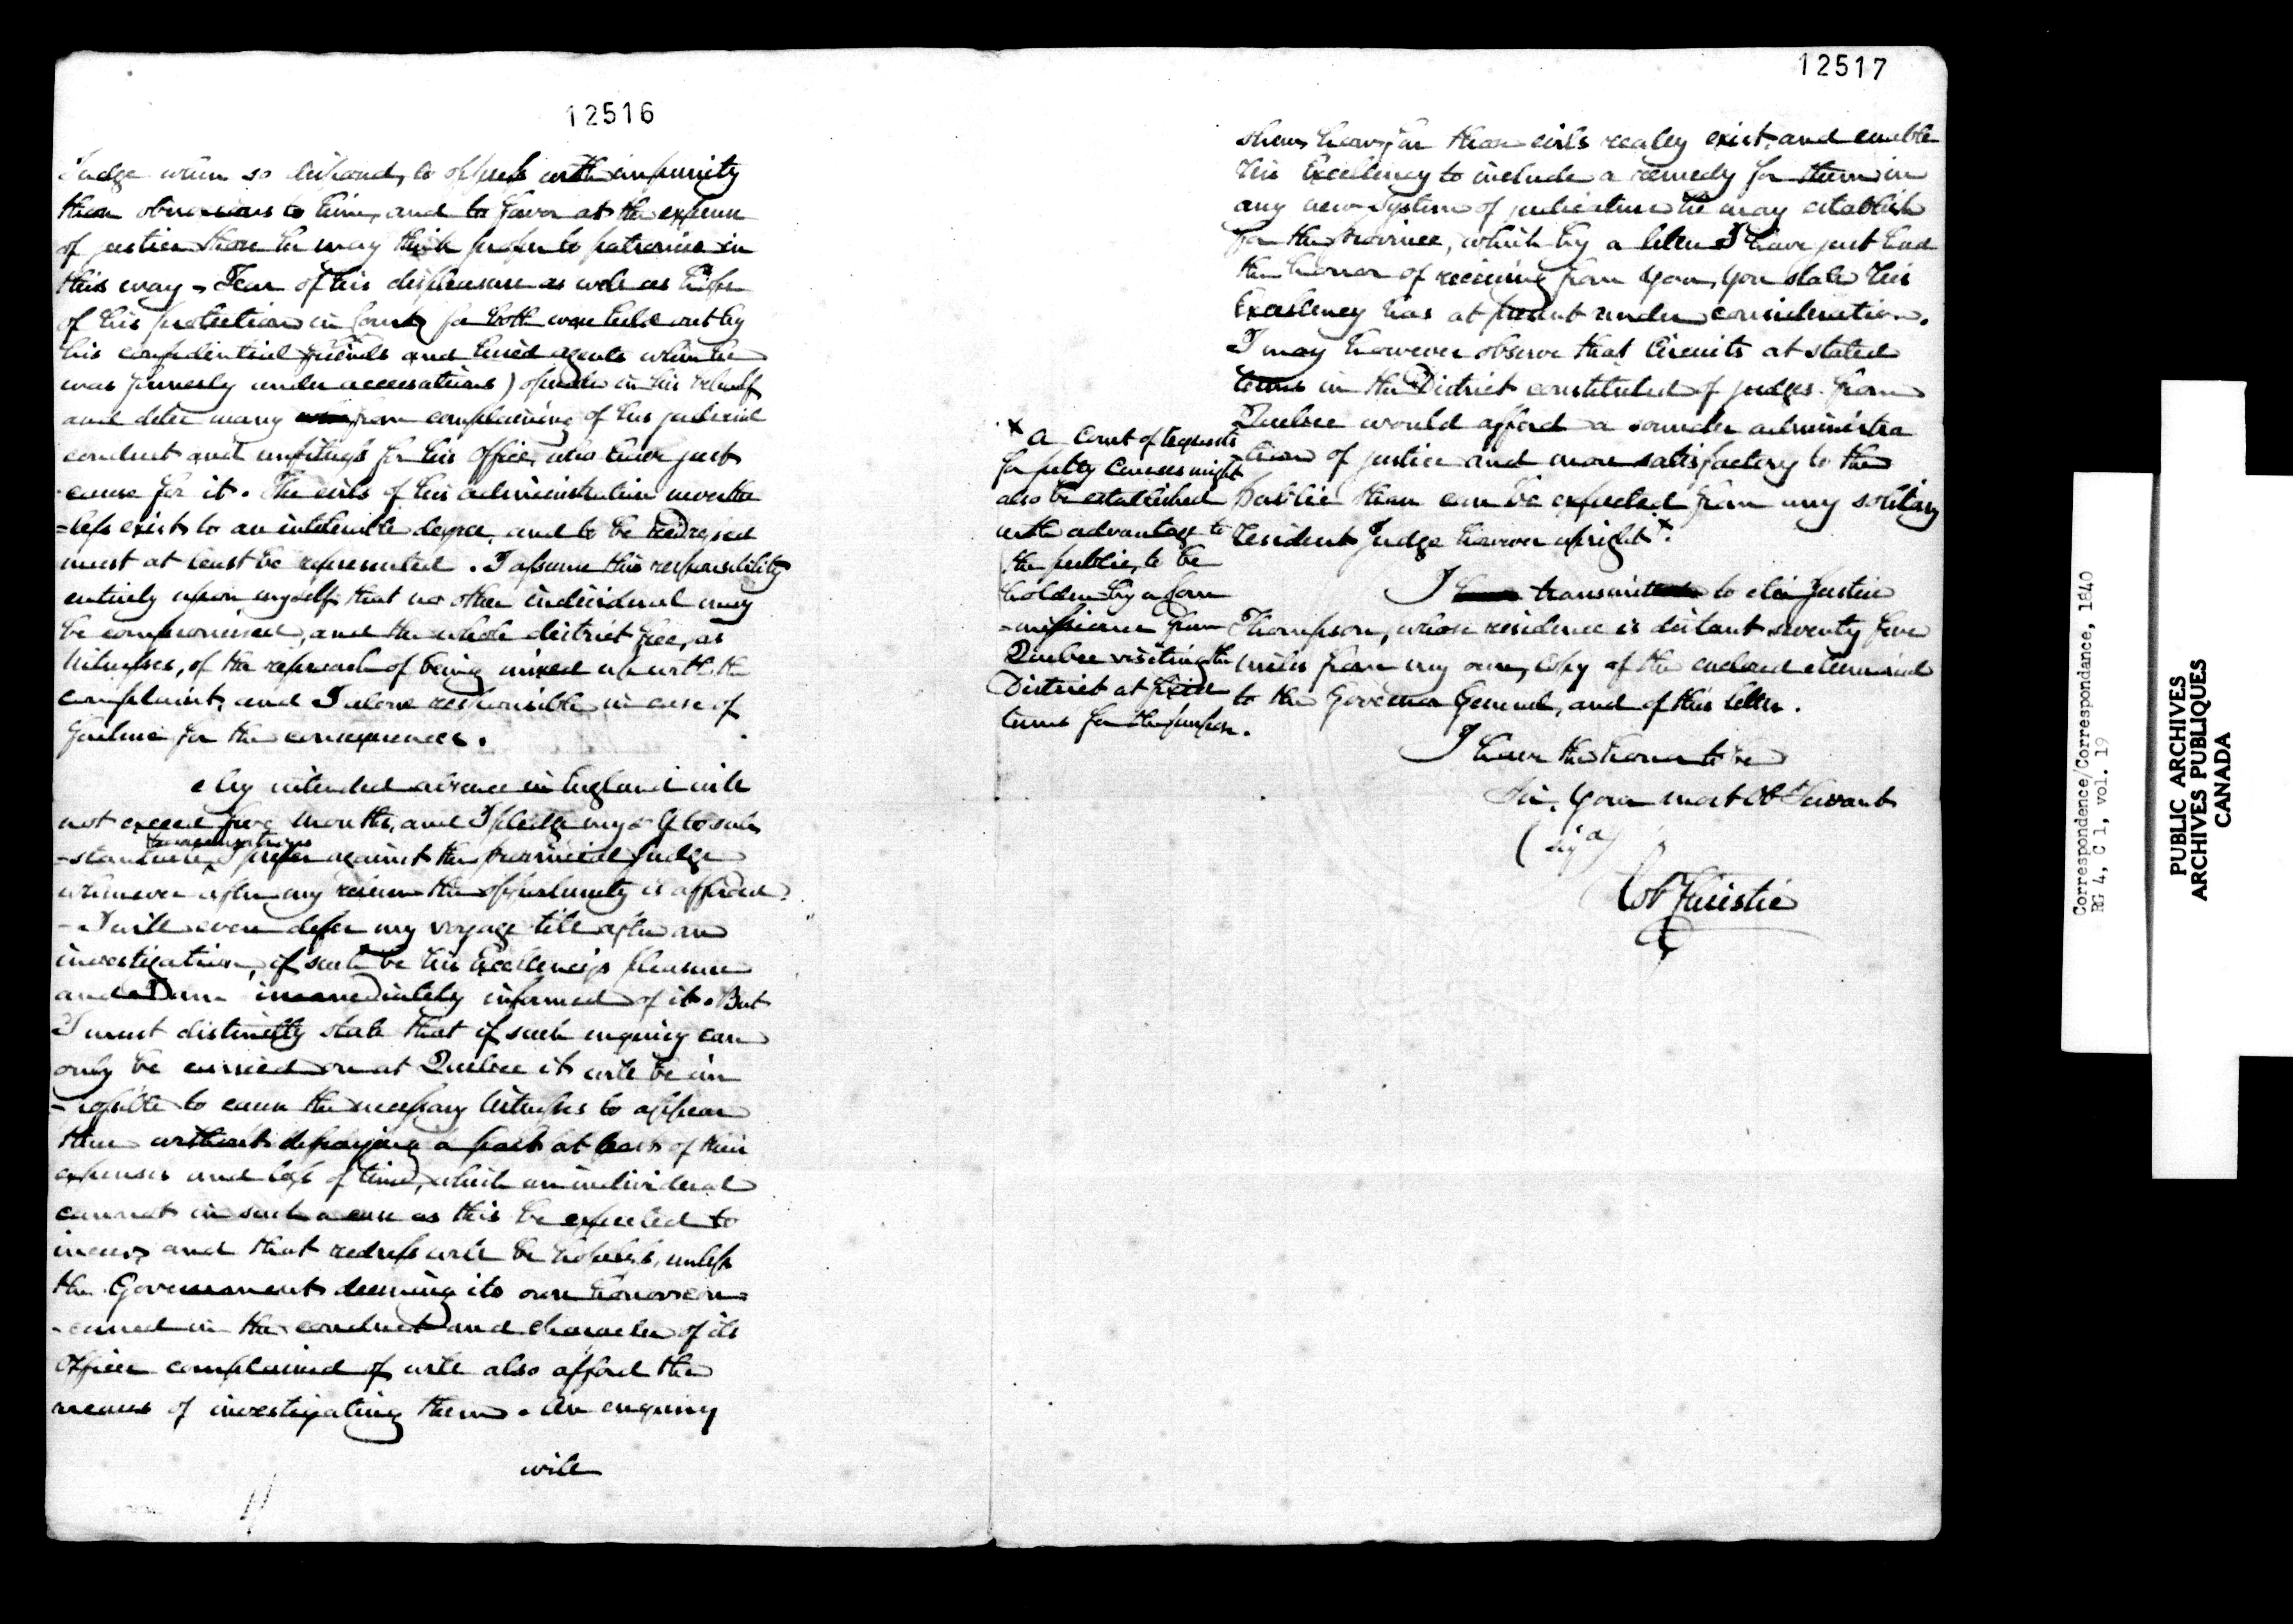 12516
Judge when so disposed, to oppress with impunity
those obnoxious to him, and to favor at the expense
of justice those he may think proper to patronise in
this way – Fear of his displeasure as well as hopes
of his protection in Court, for both were held out by
his confidential friends and hired agents when he
was formerly under accusations) operate in his behalf
and deter many from complaining of his judicial
conduct and unfitness for his office, who have just
cause for it. The evils of his administration neverthe
-less exist to an intolerable degree, and to be redressed
must at least be represented. I assume this responsibility
entirely upon myself, that no other individual may
be compromised, and the whole district free, as
Witnesses, of the reproach of being mixed up with the
complaint, and I alone responsible in case of
failure for the consequences.
My intended absence in England will
not exceed five Months, and I pledge myself to sub
-stantiate the accusations I prefer against the provincial Judge
whenever after my return the opportunity is afforded.
– I will even defer my voyage till after an
investigation, if such be His Excellency's pleasure
and I am immediately informed of it. But
I must distinctly state that if such enquiry can
only be carried on at Quebec it will be im
-possible to cause the necessary Witnesses to appear
there without defraying a part at least of their
expenses and loss of time, which an individual
cannot in such a case as this be expected to
incur, and that redress will be hopeless, unless
the Government deeming its own honor con=
-cerned in the conduct and character of its
Officer complained of will also afford the
means of investigating them. An enquiry
will
12517
shew how far these evils really exist, and enable
His Excellency to include a remedy for them in
any new System of judicature he may establish
for the Province, which by a letter I have just had
the honor of receiving from You, You state His
Excellency has at present under consideration.
I may however observe that Circuits at stated
terms in the District constituted of judges from
Quebec would afford a sounder administra
tion of justice and more satisfactory to the
public than can be expected from any solitary
resident Judge however upright x.
x A Court of Requests
for petty Causes might
also be established
with advantage to
the public, to be
holden by a Com
-missioner from
Quebec visiting the
District at fixed
terms for the purpose.
I transmit to Mr Justice
Thompson, whose residence is distant seventy five
miles from my own, Copy of the enclosed Memorial
to the Governor General, and of this letter.
I have the honor to be
Sir, Your most Ob Servant
(sigd)
Rob Christie
Correspondence/Correspondance, 1840
RG 4, C 1, vol. 19
PUBLIC ARCHIVES
ARCHIVES PUBLIQUES
CANADA